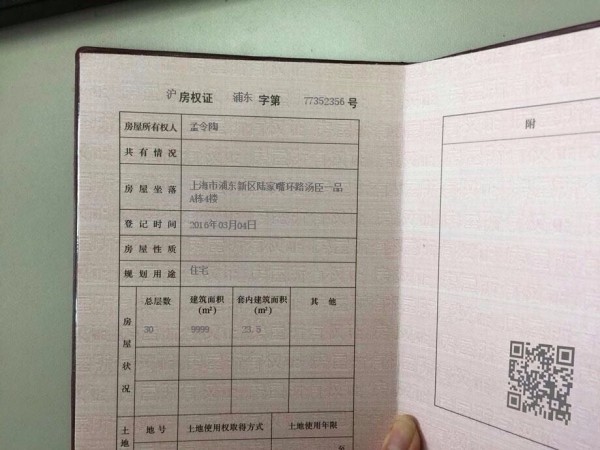 沪 房权证 浦东 字第 77352356 号
房屋所有权人 孟令陶
共有情况
房屋坐落 上海市浦东新区陆家嘴环路汤臣一品
A栋4楼
登记时间 2016年03月04日
房屋性质
规划用途 住宅
房屋状况 总层数 建筑面积 套内建筑面积 其他
(m²) (m²)
30 9999 23.5
土地 地号 土地使用权取得方式 土地使用年限
附